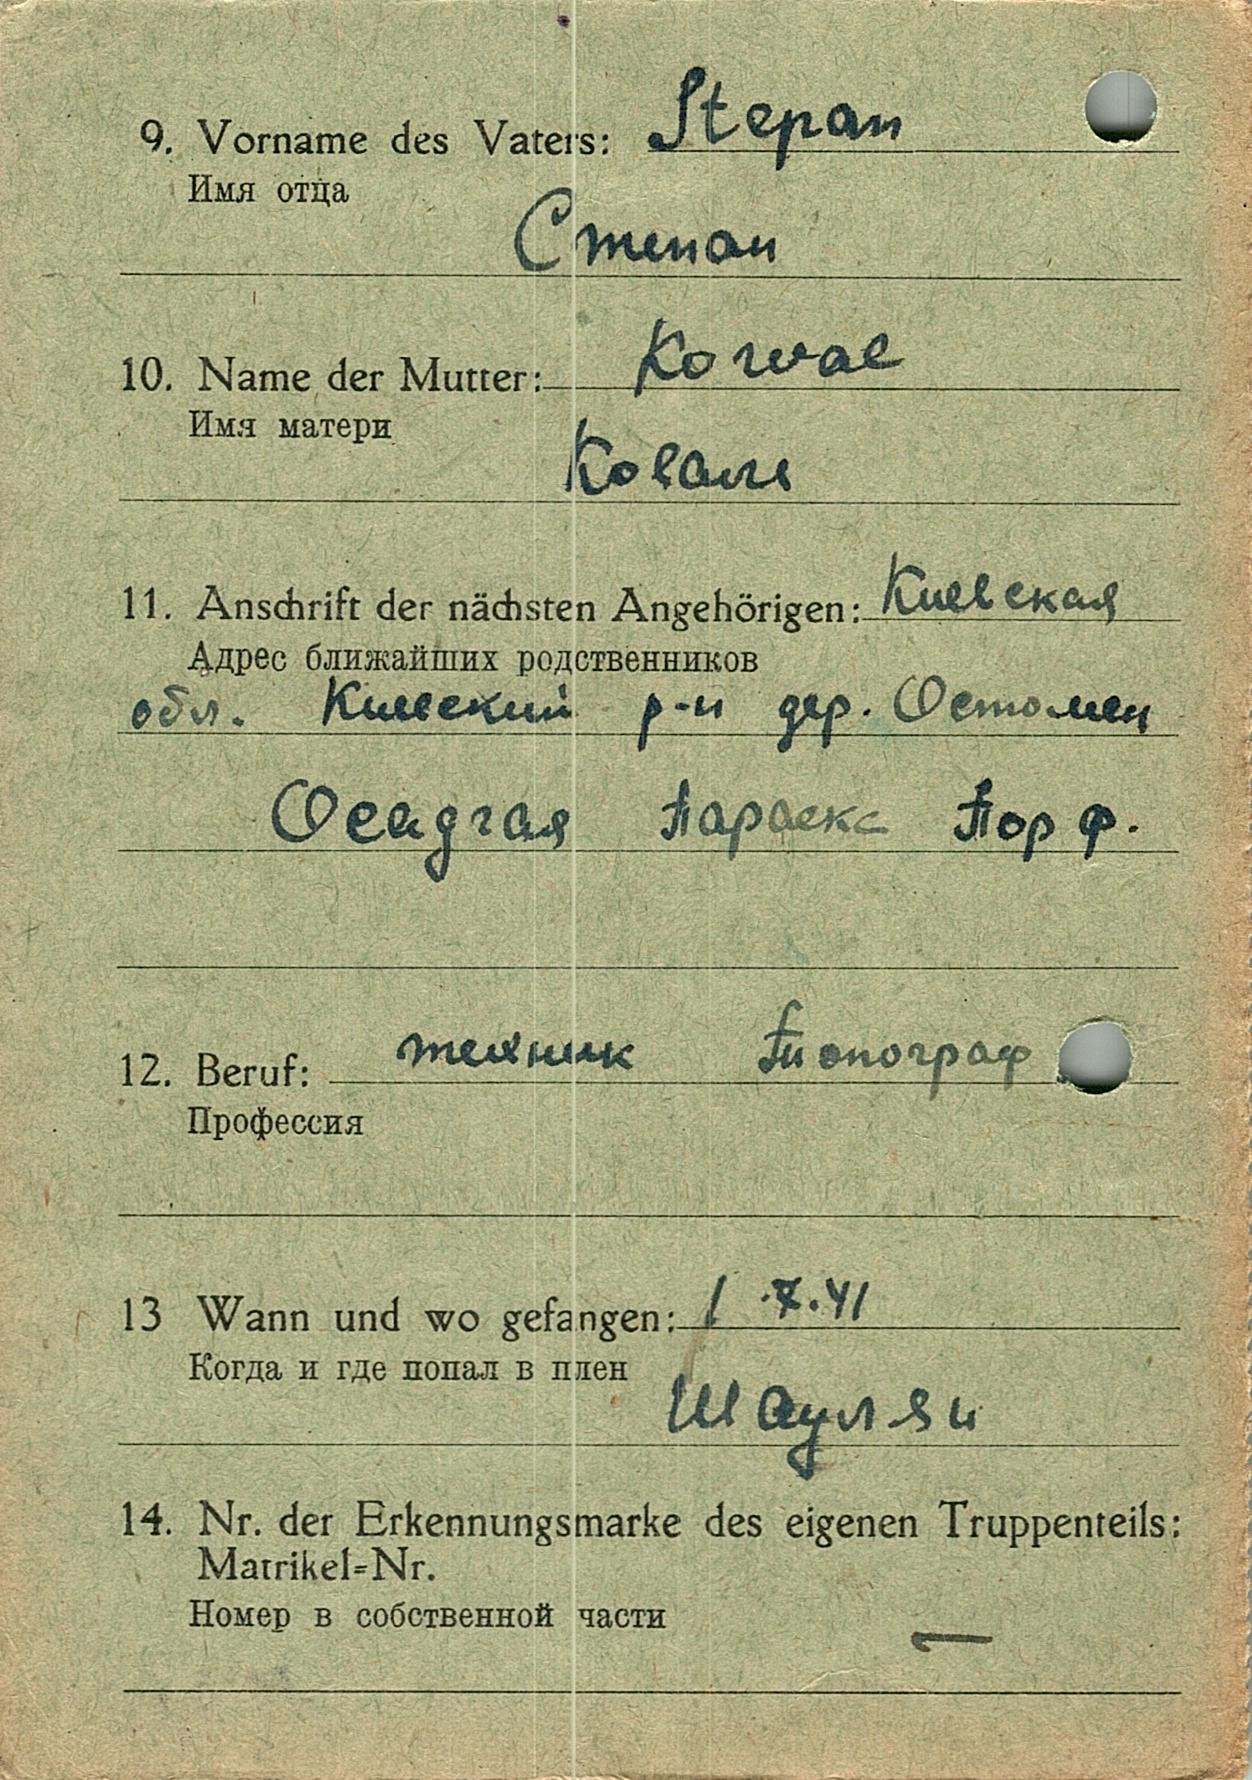 9. Vorname des Vaters: Stepan
Имя отца
Степан
10. Name der Mutter: Kowal
Имя матери
Коваль
11. Anschrift der nächsten Angehörigen: Киевская
Адрес ближайших родственников
обл. Киевский р-н дер.
Осадчая Параска Порф.
12. Beruf: техник Топограф
Профессия
13 Wann und wo gefangen: 1.7.41
Когда и где попал в плен
Шауляи
14. Nr. der Erkennungsmarke des eigenen Truppenteils:
Matrikel-Nr.
Номер в собственной части
—